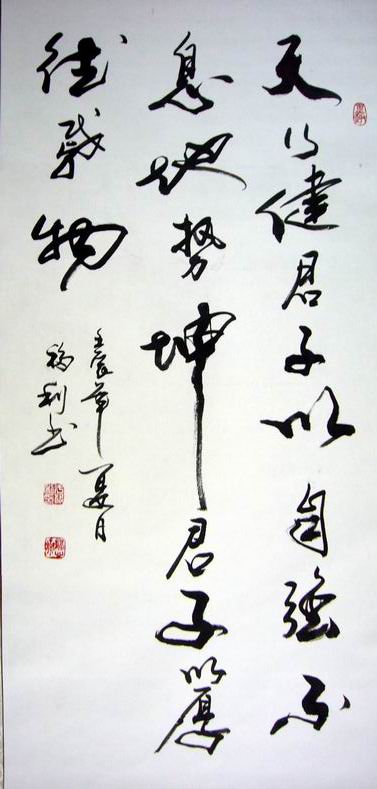 天行健君子以自强不
息地势坤君子以厚
德载物
壬辰年夏月
福利书